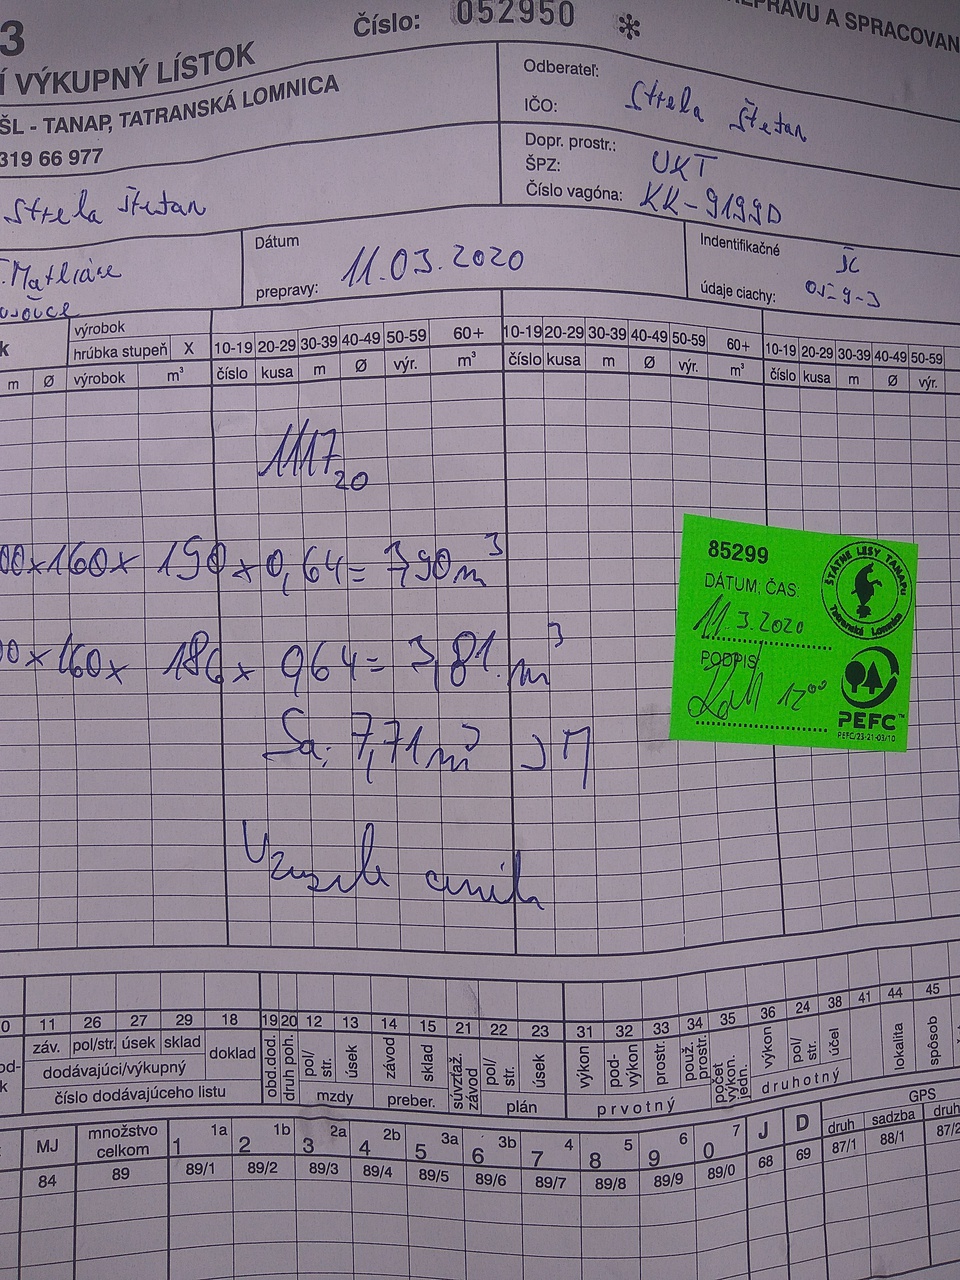 3
Číslo: 052950 *
PREPRAVU A SPRACOVAN
Í VÝKUPNÝ LÍSTOK
ŠL - TANAP, TATRANSKÁ LOMNICA
319 66 977
Odberateľ:
IČO:
Strela Štefan
Dopr. prostr.: UKT
ŠPZ:
Číslo vagóna: KK-9199D
Strela Štefan
Matliare
Dátum
prepravy: 11.03.2020
Indentifikačné
údaje ciachy:
k
výrobok
hrúbka stupeň X 10-19 20-29 30-39 40-49 50-59 60+ 10-19 20-29 30-39 40-49 50-59 60+ 10-19 20-29 30-39 40-49 50-59
m Ø výrobok m³ číslo kusa m Ø výr. m³ číslo kusa m Ø výr. m³ číslo kusa m Ø výr.
1117 20
00x160x 190x0,64= 3,90m³
00x160x 186x 0,64= 3,81 m³
Sa: 7,71m³
85299
DÁTUM, ČAS:
11.3.2020
PODPIS
12⁰⁰
ŠTÁTNE LESY TANAPu
Tatranská Lomnica
PEFC™
PEFC/23-21-03/10
0 11 26 27 29 18 19 20 12 13 14 15 21 22 23 31 32 33 34 35 36 24 38 41 44 45
záv. pol/str. úsek sklad doklad obd.dod. druh poh. pol/str. úsek závod sklad súvzťaž. závod pol/str. úsek výkon pod-výkon prostr. použ. prostr. počet výkon. jedn. výkon pol/str. účel lokalita spôsob
dodávajúci/výkupný mzdy preber. plán prvotný druhotný
číslo dodávajúceho listu
GPS
MJ množstvo celkom 1 1a 2 1b 3 2a 4 2b 5 3a 6 3b 7 4 8 5 9 6 0 7 J D druh sadzba druh
84 89 89/1 89/2 89/3 89/4 89/5 89/6 89/7 89/8 89/9 89/0 68 69 87/1 88/1 87/2